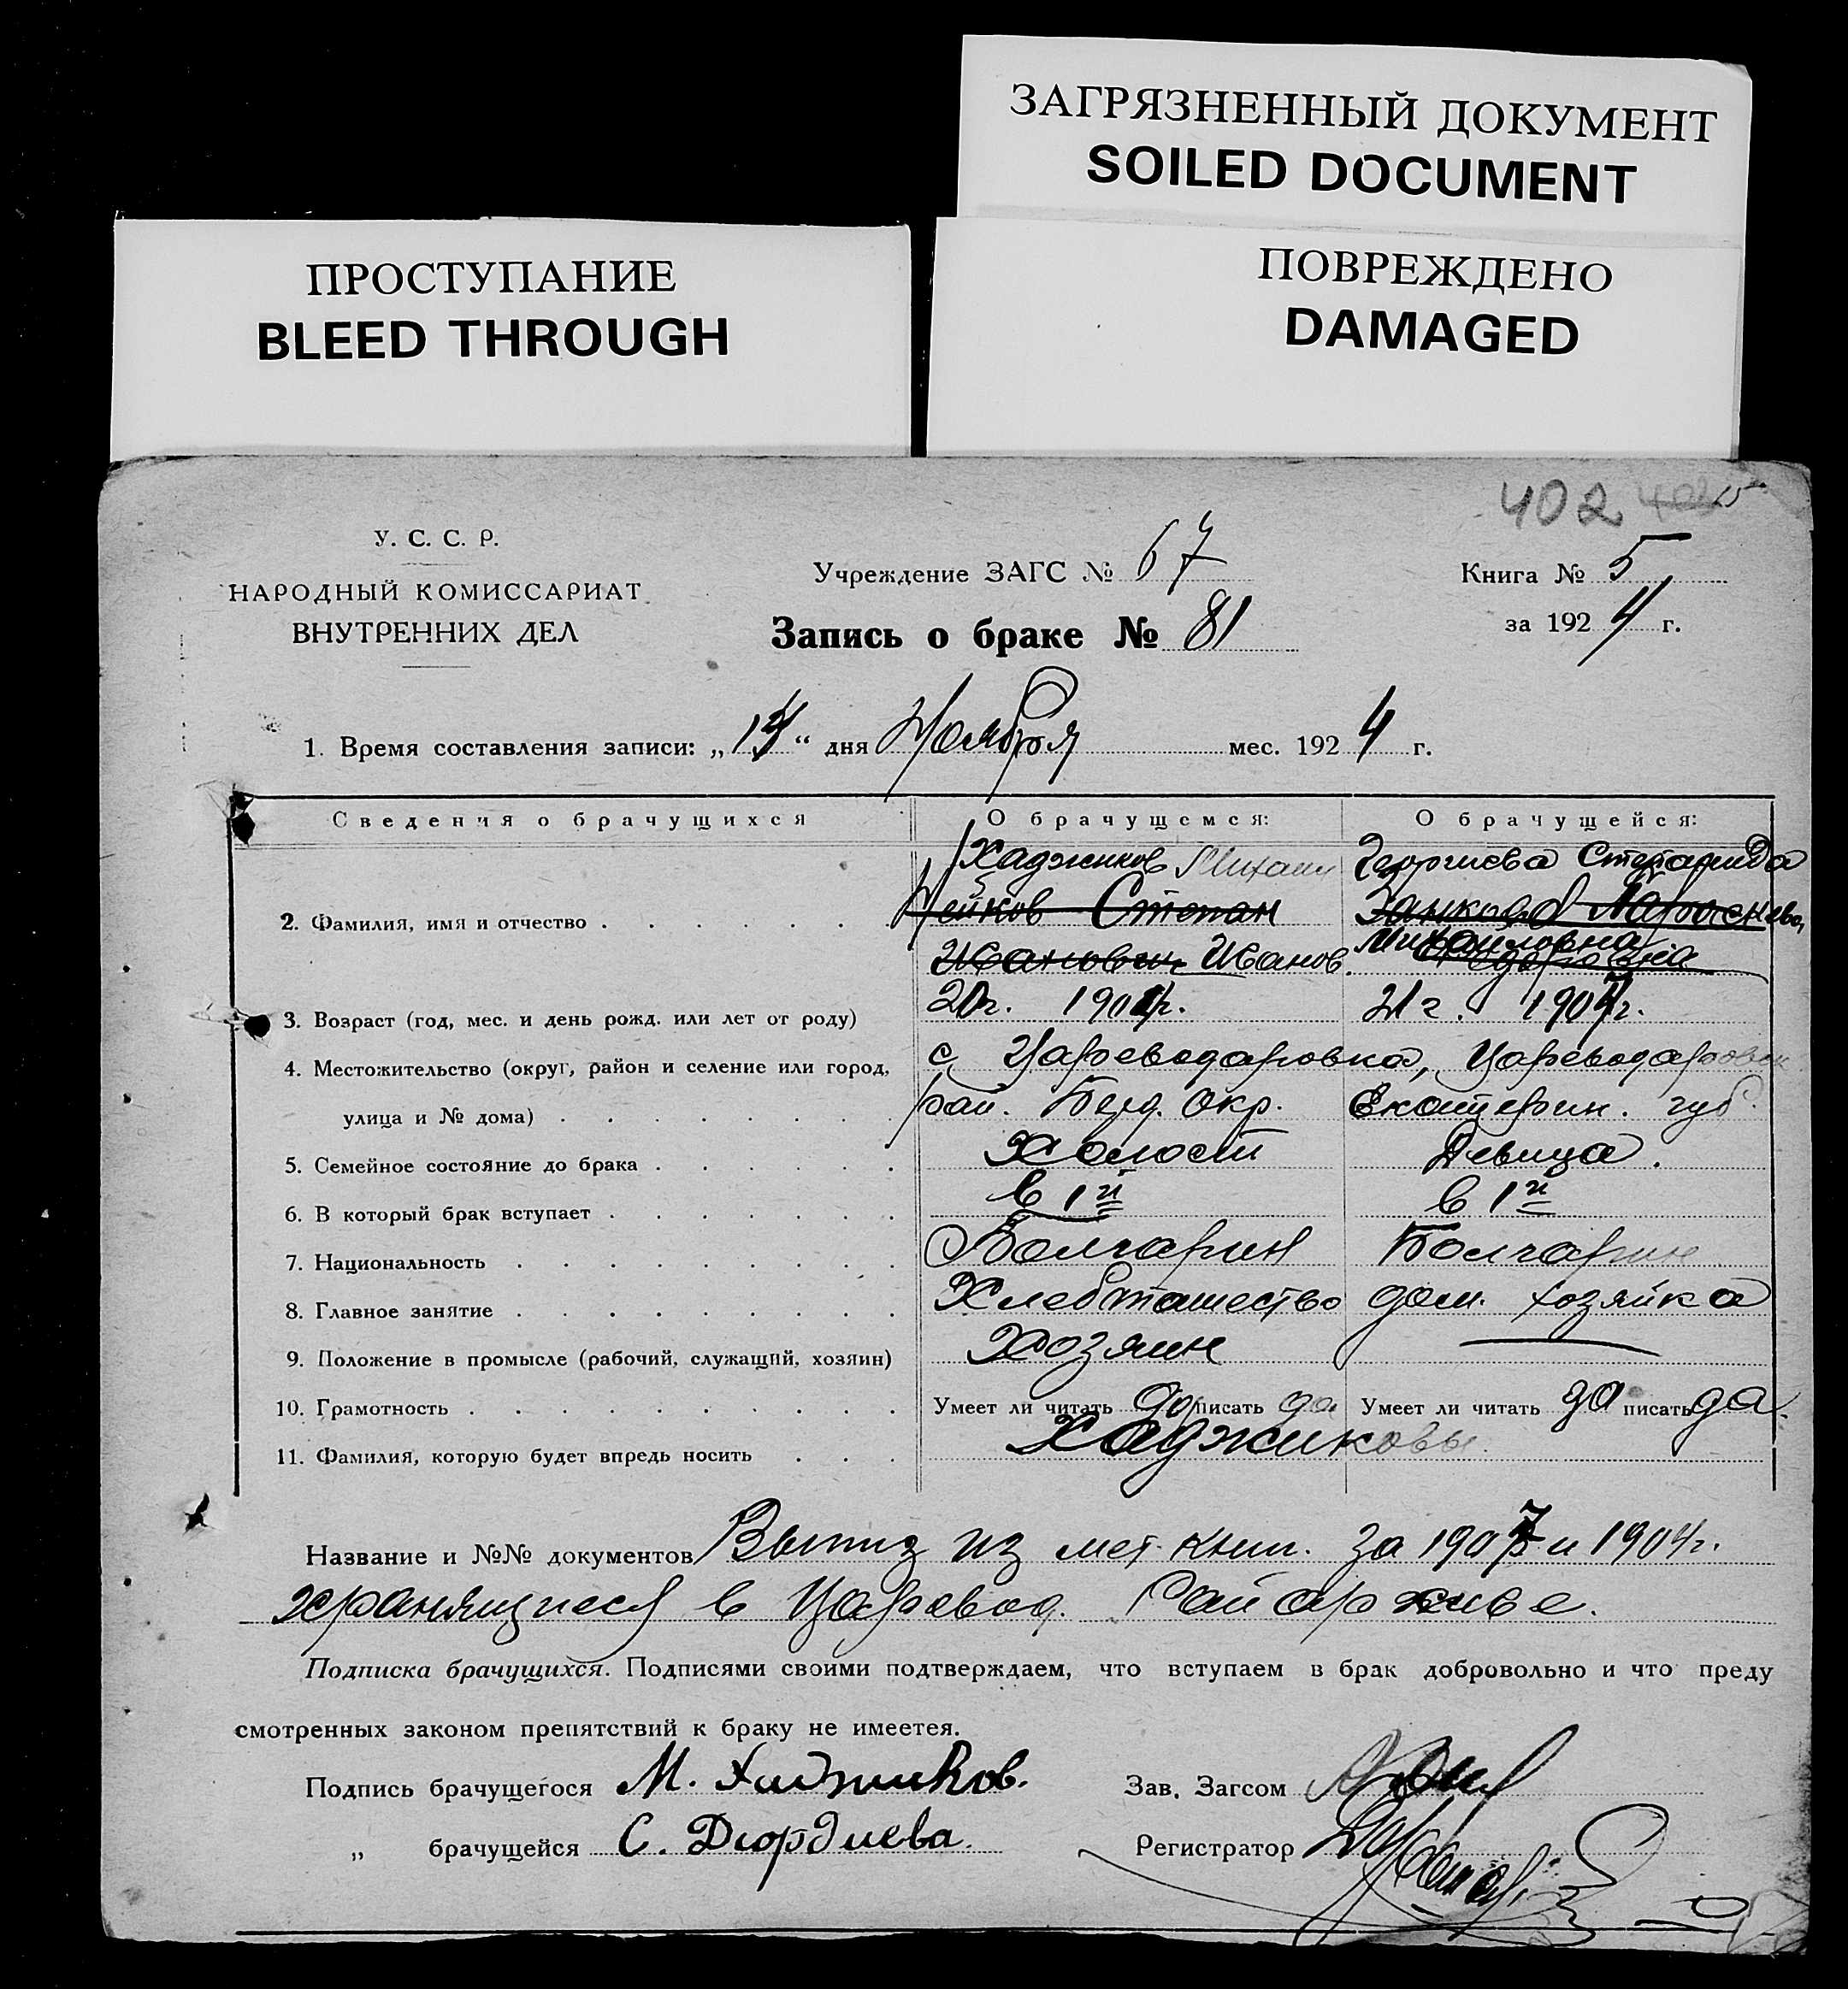 ЗАГРЯЗНЕННЫЙ ДОКУМЕНТ
SOILED DOCUMENT
ПРОСТУПАНИЕ
BLEED THROUGH
ПОВРЕЖДЕНО
DAMAGED
402
У. С. С. Р.
НАРОДНЫЙ КОМИССАРИАТ
ВНУТРЕННИХ ДЕЛ
Учреждение ЗАГС № 67
Запись о браке № 81
Книга № 5
за 1924 г.
1. Время составления записи: „14“ дня Ноября мес. 1924 г.
Сведения о брачущихся О брачущемся: О брачущейся:
Хаджиков Михаил Георгиева Степанида
2. Фамилия, имя и отчество Степан
Иванович Иванов. Михайловна
3. Возраст (год, мес. и день рожд. или лет от роду) 20г. 1904г. 21г. 190 г.
4. Местожительство (округ, район и селение или город, с. Цареводаровка, Цареводаровск
улица и № дома) рай. Берд. Окр. Екатерин. губ.
5. Семейное состояние до брака Холост Девица.
6. В который брак вступает в 1й в 1й
7. Национальность Болгарин Болгарин
8. Главное занятие Хлебопашество дом. хозяйка
9. Положение в промысле (рабочий, служащий, хозяин) Хозяин
10. Грамотность Умеет ли читать да писать да Умеет ли читать да писать да.
11. Фамилия, которую будет впредь носить Хаджиковы.
Название и №№ документов Выпис из мет. книг. за 190 и 1904г.
хранящиеся в Царевод. Райархиве.
Подписка брачущихся. Подписями своими подтверждаем, что вступаем в брак добровольно и что преду
смотренных законом препятствий к браку не имеетея.
Подпись брачущегося М. Хаджиков. Зав. Загсом
„ брачущейся С. Дюрдиева. Регистратор